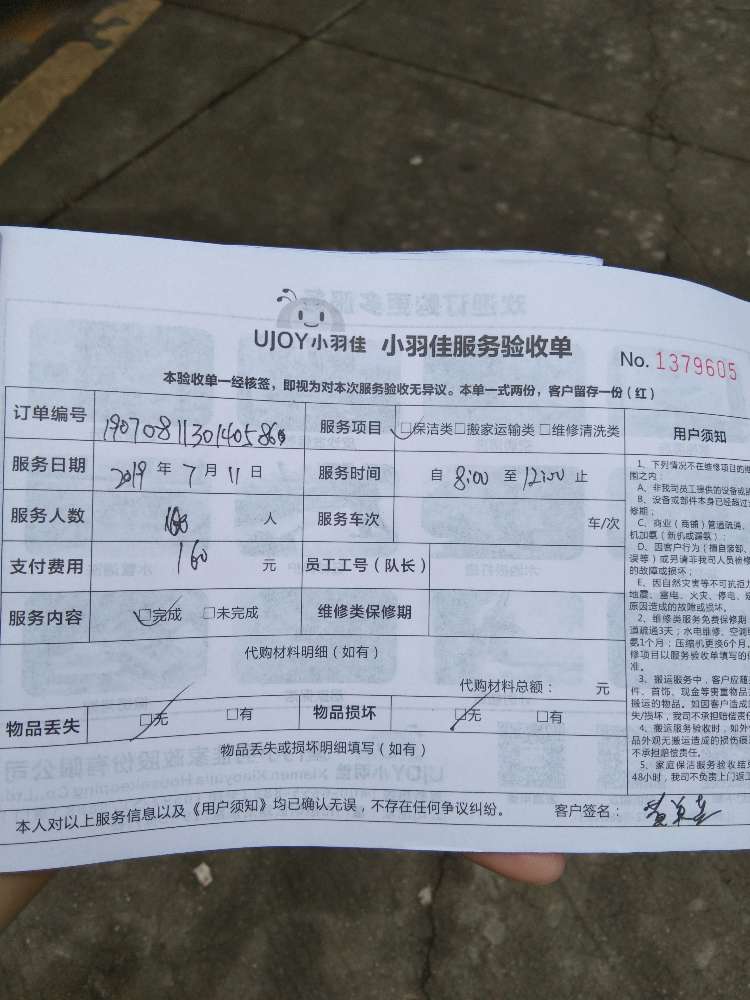 UJOY小羽佳 小羽佳服务验收单 No. 1379605
本验收单一经核签，即视为对本次服务验收无异议。本单一式两份，客户留存一份（红）
订单编号 服务项目 □保洁类□搬家运输类□维修清洗类
服务日期 2019 年 7 月 11 日 服务时间 自 8:00 至 12:00 止
服务人数 人 服务车次 车/次
支付费用 160 元 员工工号（队长）
服务内容 □完成 □未完成 维修类保修期
代购材料明细（如有）
代购材料总额： 元
物品丢失 □无 □有 物品损坏 □无 □有
物品丢失或损坏明细填写（如有）
本人对以上服务信息以及《用户须知》均已确认无误，不存在任何争议纠纷。 客户签名：
用户须知
1、下列情况不在维修项目的
围之内：
A、非我司员工提供的设备或
B、设备或部件本身已经超过
修期；
C、商业（商铺）管道疏通、
机加氨（新机或漏氨）；
D、因客户行为（擅自装卸、
误等）或另请非我司人员检修
的故障或损坏；
E、因自然灾害等不可抗拒力
地震、雷电、火灾、停电、
原因造成的故障或损坏。
2、维修类服务免费保修期
道疏通3天；水电维修、空调
氨1个月；压缩机更换6个月。
修项目以服务验收单填写的
准。
3、搬运服务中，客户应
件、首饰、现金等贵重物品
搬运的物品。如因客户造成
失/损坏，我司不承担赔偿责任
4、搬运服务验收时，如外
品外观无搬运造成的损伤痕
不承担赔偿责任。
5、家庭保洁服务验收结
48小时，我司不负责上门返工